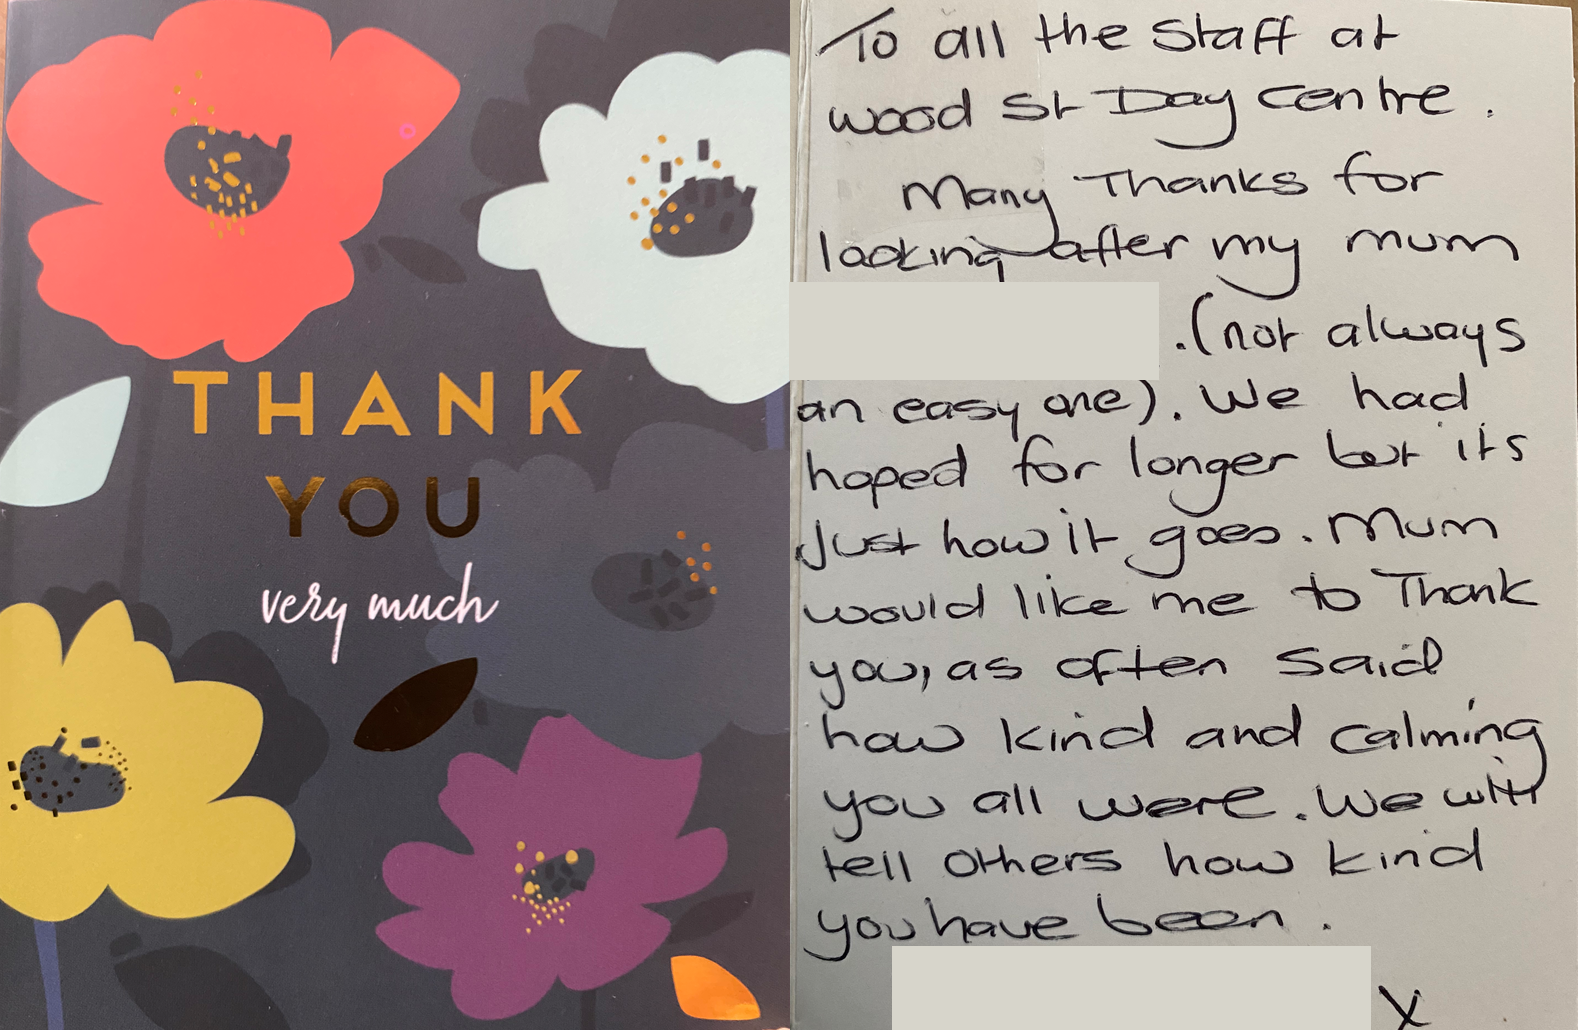 THANK
YOU
very much
To all the staff at
wood St Day Centre.
Many Thanks for
looking after my mum
.(not always
an easy one). We had
hoped for longer but its
Just how it goes. Mum
would like me to Thank
you, as often said
how kind and calming
you all were. We will
tell others how kind
you have been.
X